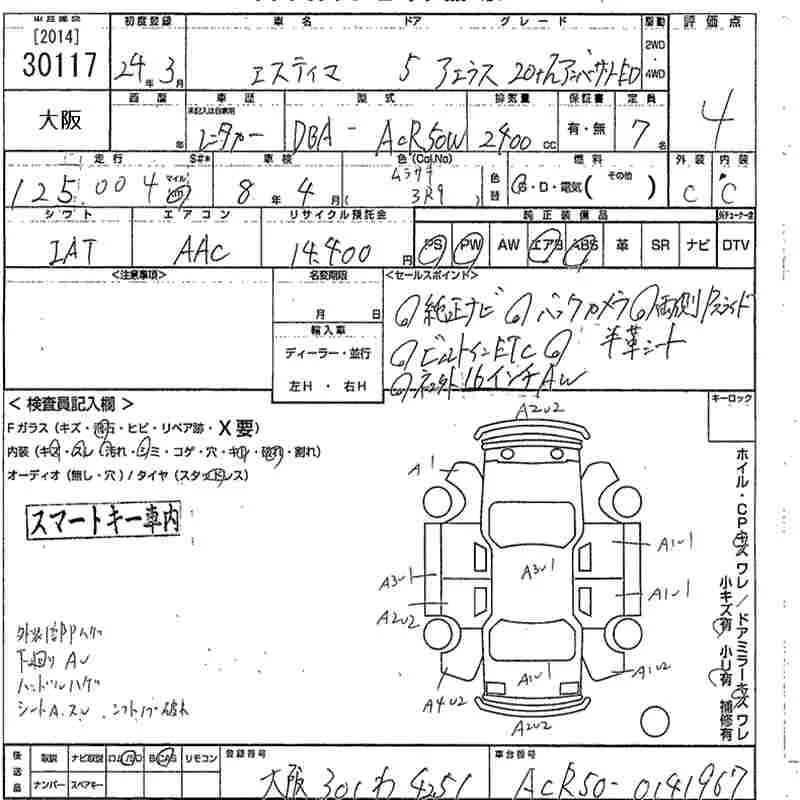 [2014]
30117
初度登録
車名
ドア
グレード
駆動
評価点
24年 3月
エスティマ
5 アエラス
2WD
・
4WD
4
大阪
車歴
型式
排気量
保証書
定員
年
未記入は自家用
レンタカー
DBA - ACR50W
2400 CC
有・無
7名
走行
S#*
車検
色(Col,No)
燃料
外装
内装
125.004
マイル
8年 4月
3R9
色替
G・D・電気( その他 )
C
C
シフト
エアコン
リサイクル預託金
純正装備品
IAT
AAC
14.400円
PS
PW
AW
エアB
ABS
革
SR
ナビ
DTV
<注意事項>
名変期限
<セールスポイント>
月 日
純正ナビ バックカメラ 両側Pスライド
輸入車
ビルトインETC 半革シート
ディーラー・並行
16インチAW
左H・右H
<検査員記入欄>
キーロック
Fガラス(キズ・飛石・ヒビ・リペア跡・X要)
内装(キズ・スレ・汚れ・シミ・コゲ・穴・キレ・破れ・割れ)
オーディオ(無し・穴)/タイヤ(スタッドレス)
スマートキー車内
A2U2
A1
A1U1
A3U1
A3U1
A2U2
A1U1
A1U1
A1U2
A4U2
A2U2
ホイル・CPキズ ワレ/ドアミラーキズ ワレ
小キズ有 小U有 補修有
下廻り AU
ハンドルハゲ
シートA.スレ
後送品
取説
ナビ取説
リモコン
ナンバー
スペアキー
登録番号
大阪 301 わ 4251
車台番号
ACR50-0141967